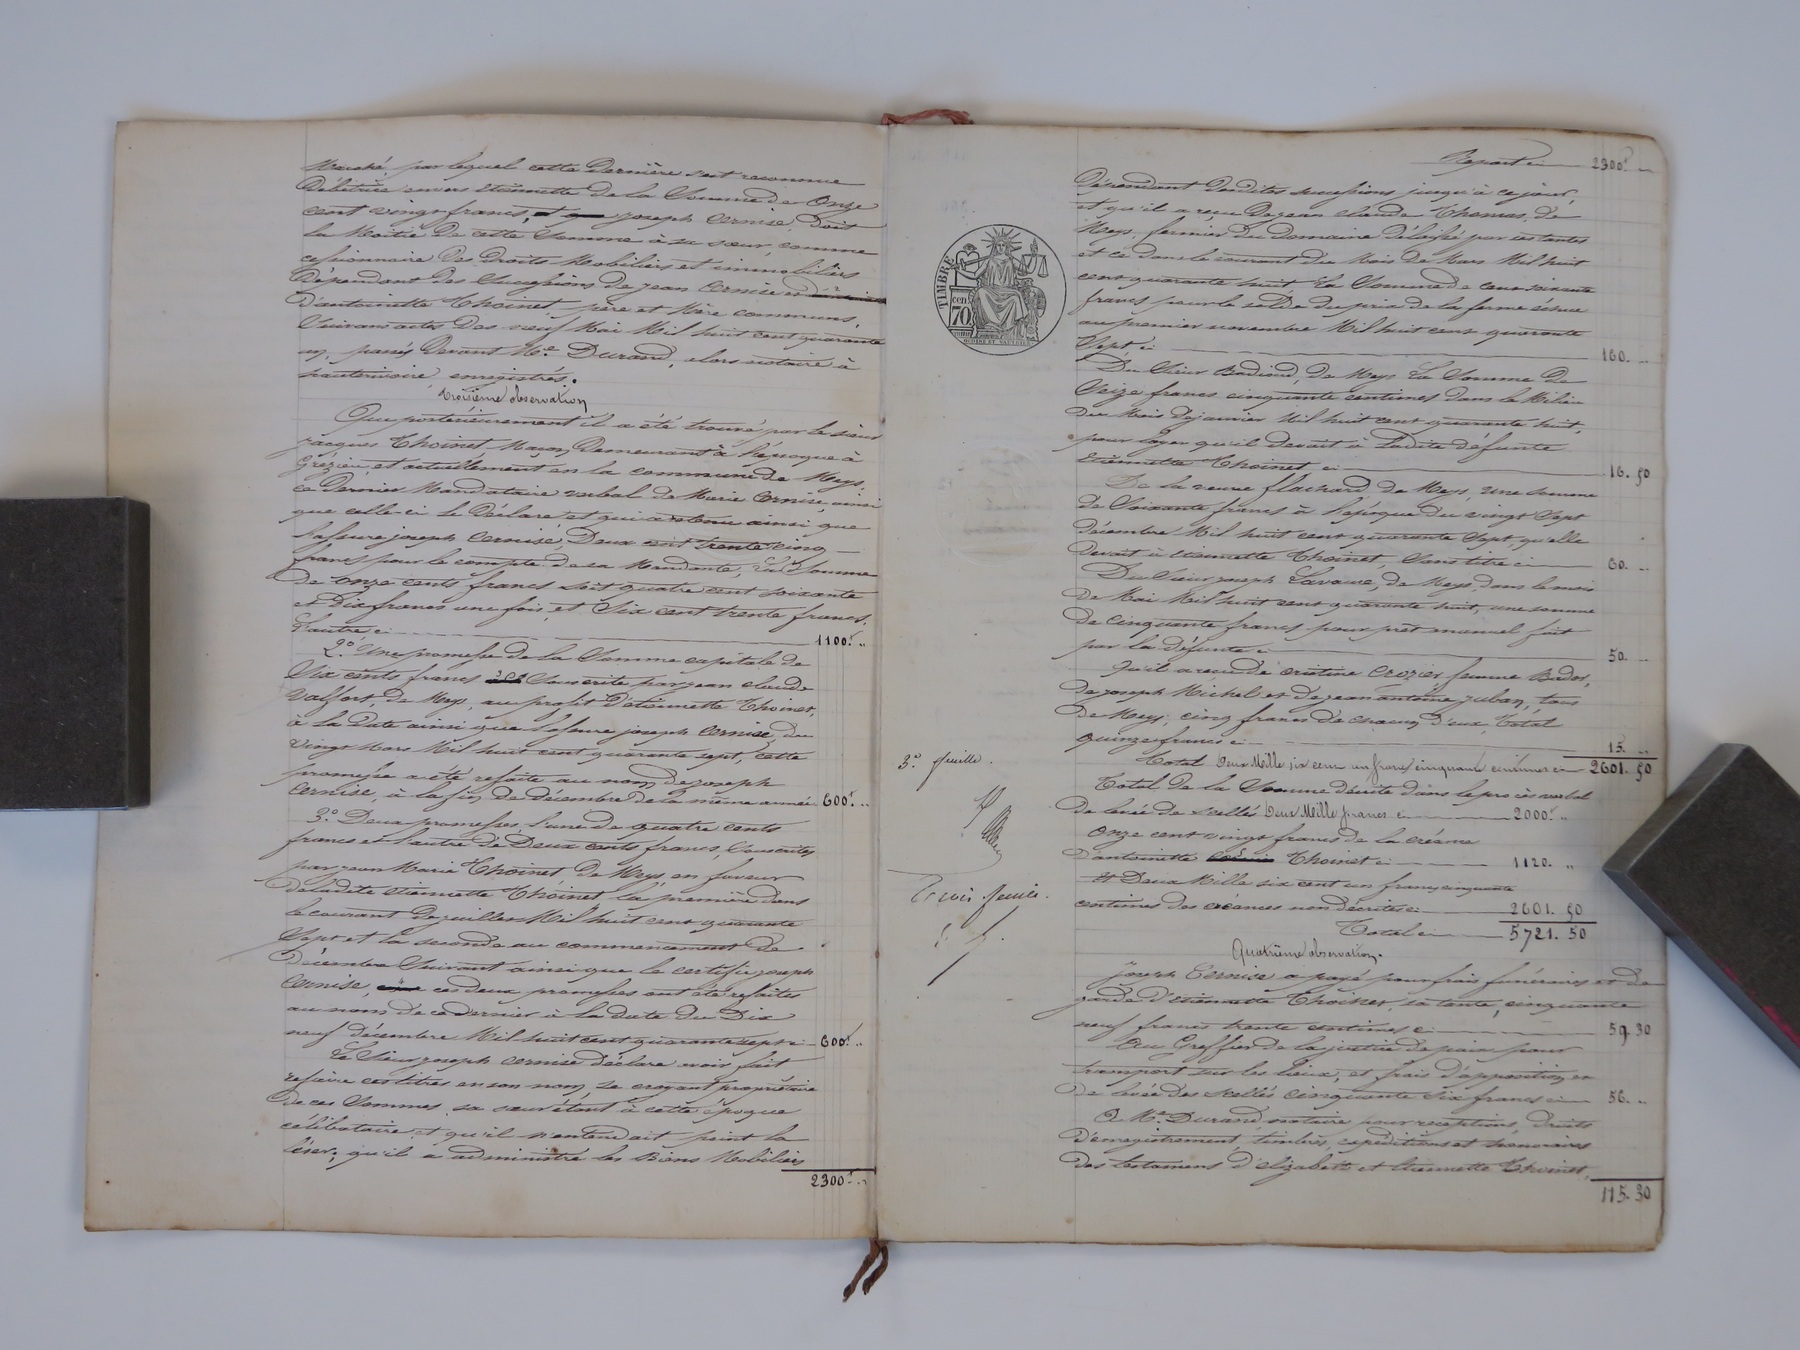 Marché, par lequel cette dernière s'est reconnue
débitrice envers Etiennette de la Somme de Onze
cent vingt francs, joseph Cernise, doit
la Moitié de cette Somme à sa sœur, comme
cessionnaire des droits Mobiliers et immobiliers
dépendant des Successions de jean Cernise et
d'antoinette Thoinet, père et Mère communs,
Suivant actes des neuf Mai Mil huit cent quarante
un, passés devant Me Durand, alors notaire à
enregistrés.
troisième observation
Que postérieurement il a été trouvé par le sieur
jacques Thoinet Maçon demeurant à l'époque à
Grézieu, et actuellement en la commune de Meys,
ce dernier Mandataire verbal de Marie Cernise, ainsi
que celle ci le déclare et qui a retenu ainsi que
l'assure joseph Cernise, Deux cent trente cinq
francs pour le compte de sa Mandante, la Somme
de Onze cents francs soit quatre cent soixante
et Dix francs une fois, et Six cent trente francs,
l'autre ci 1100f ..
2° Une promesse de la Somme capitale de
Six cents francs Souscrite par jean claude
Valfort, de Meys, au profit d'etiennette Thoinet,
à la date ainsi que l'assure joseph Cernise, du
vingt Mars Mil huit cent quarante sept, cette
promesse a été refaite au nom de joseph
Cernise, à la fin de décembre de la même année 600f ..
3° Deux promesses l'une de quatre cents
francs et l'autre de Deux cents francs, Souscrites
par jean Marie Thoinet de Meys en faveur
de ladite etiennette Thoinet la première dans
le courant de juillet Mil huit cent quarante
Sept et la seconde au commencement de
décembre Suivant ainsi que le certifie joseph
Cernise, ces deux promesses ont été refaites
au nom de ce dernier à la date du Dix
neuf décembre Mil huit cent quarante sept ci 600f ..
Le Sieur joseph Cernise déclare avoir fait
refaire ces titres en son nom, se croyant propriétaire
de ces Sommes, sa sœur étant à cette époque
célibataire et qu'il n'entendait point la
léser, qu'il a administré les Biens Mobiliers
2300f ..
Report ci 2300f ..
dépendant desdites successions jusqu'à ce jour,
et qu'il a reçu de jean claude Thomas, de
Meys, fermier du domaine délaissé par ses tantes
et ce dans le courant du Mois de Mars Mil huit
cent quarante huit la Somme de cent soixante
francs pour le solde du prix de la ferme échue
au premier novembre Mil huit cent quarante
Sept ci 160. ..
Du Sieur Badioud, de Meys la Somme de
Seize francs cinquante centimes dans le Milieu
du Mois de janvier Mil huit cent quarante huit,
pour loyer qu'il devait à ladite défunte
etiennette Thoinet ci 16. 50
De la veuve flachard de Meys, une somme
de Soixante francs à l'époque du vingt Sept
décembre Mil huit cent quarante Sept, qu'elle
devait à etiennette Thoinet, Sans titre ci 60. ..
Du Sieur joseph Lavaure, de Meys, dans le mois
de Mai Mil huit cent quarante huit, une somme
de cinquante francs pour prêt manuel fait
par la défunte ci 50. ..
Qu'il a reçu de cristine Crozier femme
de joseph Michel et de jean antoine tous
de Meys, cinq francs de chacun d'eux, Total
quinze francs ci 15. ..
3e feuille.
Total Deux Mille six cent un franc cinquante centimes ci 2601. 50
Total de la Somme décrite dans le procès verbal
de levée de Scellés Deux Mille francs ci 2000f ..
Onze cent vingt francs de la créance
d'antoinette Thoinet ci 1120. ..
Et Deux Mille six cent un francs cinquante
centimes des créances non décrites ci 2601. 50
Total ci 5721. 50
Trois feuille.
Quatrième observation.
Joseph Cernise a payé pour frais funéraires et de
garde d'etiennette Thoinet, sa tante, cinquante
neuf francs trente centimes ci 59. 30
Au Greffier de la justice de paix pour
transport sur les lieux, et frais d'apposition et
de levée des Scellés cinquante Six francs ci 56. ..
A Me Durand notaire pour réceptions, droits
d'enregistrement, timbres, expéditions et honoraires
des testamens d'elizabeth et etiennette Thoinet,
115. 30
TIMBRE
cen
70